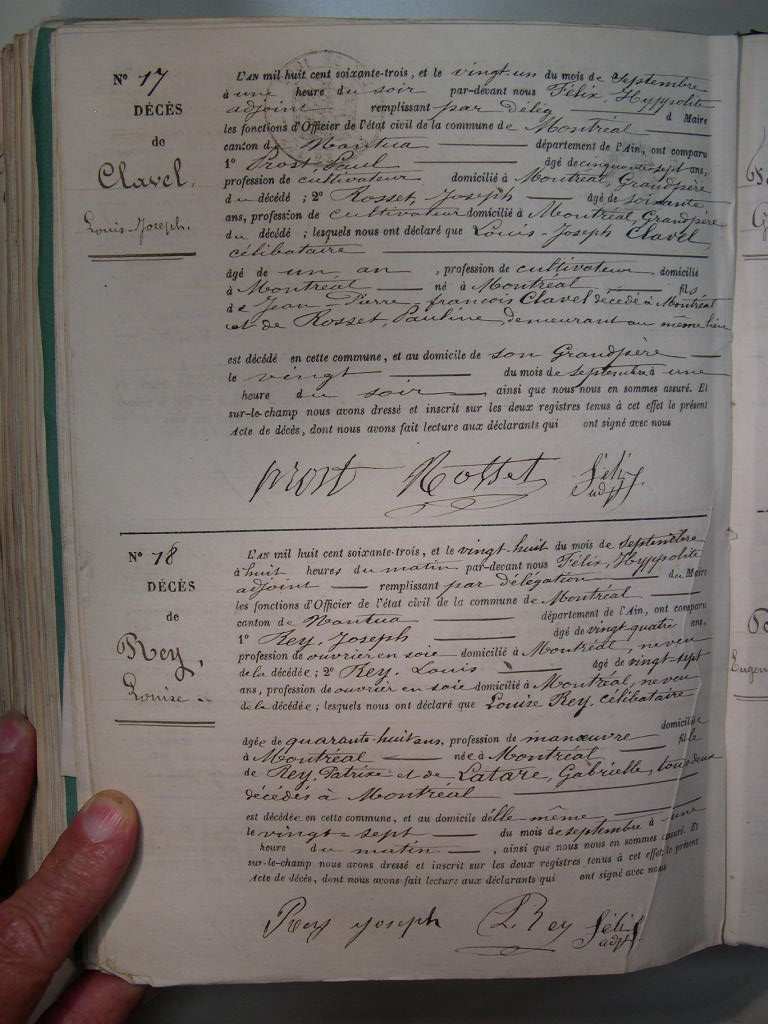 N° 17
DÉCÈS
de
Clavel,
Louis-Joseph.
L'AN mil huit cent soixante-trois, et le vingt-un du mois de septembre
à une heure du soir par-devant nous Félix, Hyppolite
adjoint remplissant par délég d Maire
les fonctions d'Officier de l'état civil de la commune de Montréal
canton de Nantua département de l'Ain, ont comparu
1° Prost, Paul âgé de cinquante sept ans,
profession de cultivateur domicilié à Montréal, Grandpère
du décédé ; 2° Rosset, Joseph âgé de soixante
ans, profession de cultivateur domicilié à Montréal, Grandpère
du décédé ; lesquels nous ont déclaré que Louis-Joseph Clavel,
célibataire
âgé de un an , profession de cultivateur domicilié
à Montréal né à Montréal fils
de Jean-Pierre-françois Clavel décédé à Montréal
et de Rosset, Pauline demeurant au même lieu
est décédé en cette commune, et au domicile de son Grandpère
le vingt du mois de septembre à une
heure du soir , ainsi que nous nous en sommes assuré. Et
sur-le-champ nous avons dressé et inscrit sur les deux registres tenus à cet effet le présent
Acte de décès, dont nous avons fait lecture aux déclarants qui ont signé avec nous
prost Rosset Féli adjt
N° 18
DÉCÈS
de
Rey,
Louise
L'AN mil huit cent soixante-trois, et le vingt-huit du mois de septembre
à huit heures du matin par-devant nous Félix, Hyppolite
adjoint remplissant par délégation du Maire
les fonctions d'Officier de l'état civil de la commune de Montréal
canton de Nantua département de l'Ain, ont comparu
1° Rey, Joseph âgé de vingt quatre ans,
profession de ouvrier en soie domicilié à Montréal, neveu
de la décédée ; 2° Rey, Louis âgé de vingt sept
ans, profession de ouvrier en soie domicilié à Montréal, neveu
de la décédée ; lesquels nous ont déclaré que Louise Rey, célibataire
âgée de quarante-huit ans, profession de manœuvre domicilié
à Montréal née à Montréal fille
de Rey, Patrixe et de Latare, Gabrielle, tous deux
décédés à Montréal
est décédée en cette commune, et au domicile d'elle-même
le vingt-sept du mois de septembre à une
heure du matin , ainsi que nous nous en sommes assuré. Et
sur-le-champ nous avons dressé et inscrit sur les deux registres tenus à cet effet le présent
Acte de décès, dont nous avons fait lecture aux déclarants qui ont signé avec nous
Rey joseph L Rey Féli adjt